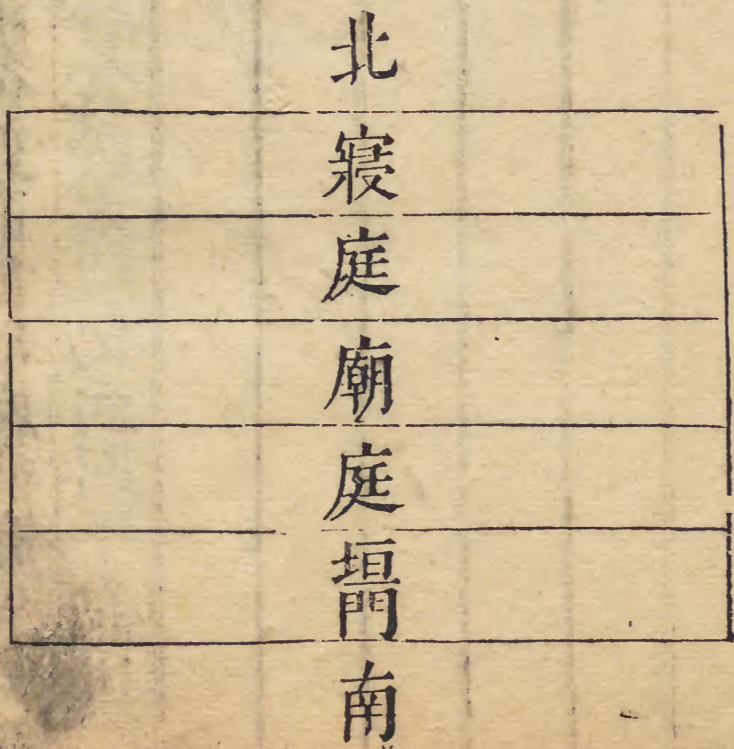 北
寢
庭
廟
庭
垣門
南